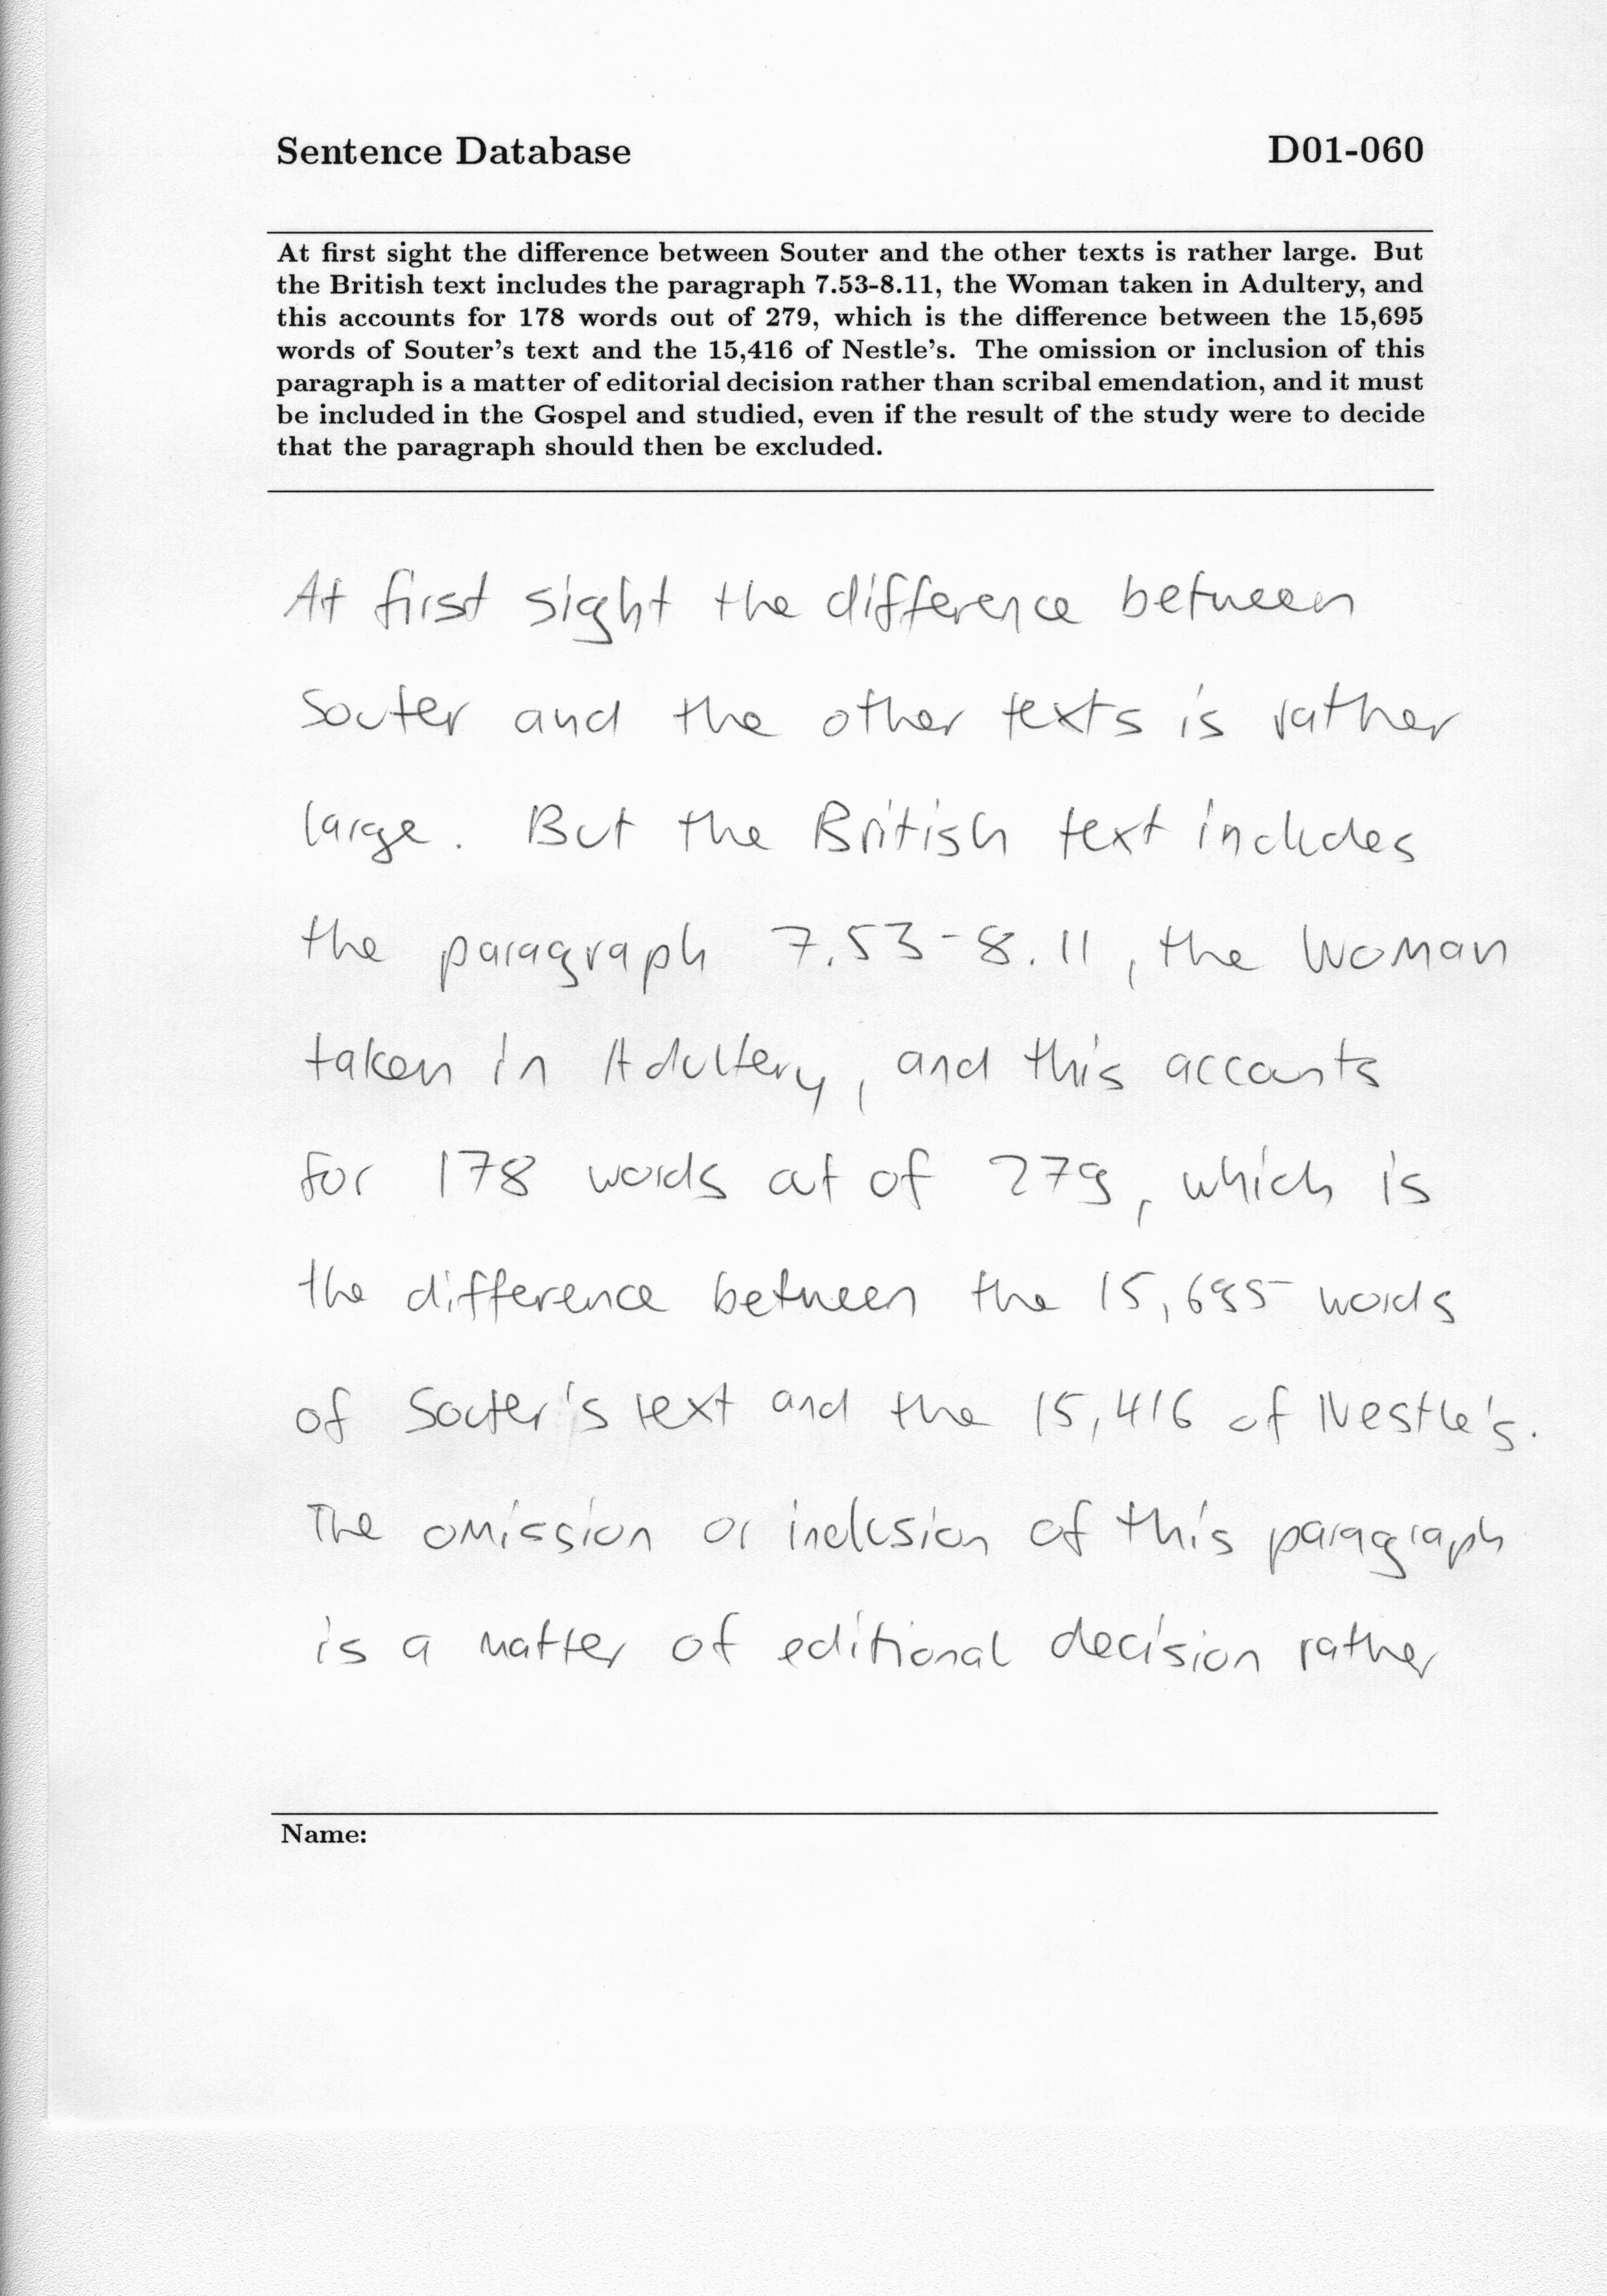 Sentence Database D01-060
At first sight the difference between Souter and the other texts is rather large. But
the British text includes the paragraph 7.53-8.11, the Woman taken in Adultery, and
this accounts for 178 words out of 279, which is the difference between the 15,695
words of Souter's text and the 15,416 of Nestle's. The omission or inclusion of this
paragraph is a matter of editorial decision rather than scribal emendation, and it must
be included in the Gospel and studied, even if the result of the study were to decide
that the paragraph should then be excluded.
At first sight the difference between
Souter and the other texts is rather
large. But the British text includes
the paragraph 7.53-8.11, the Woman
taken in Adultery, and this accounts
for 178 words out of 279, which is
the difference between the 15,695 words
of Souter's text and the 15,416 of Nestle's.
The omission or inclusion of this paragraph
is a matter of editional decision rather
Name: